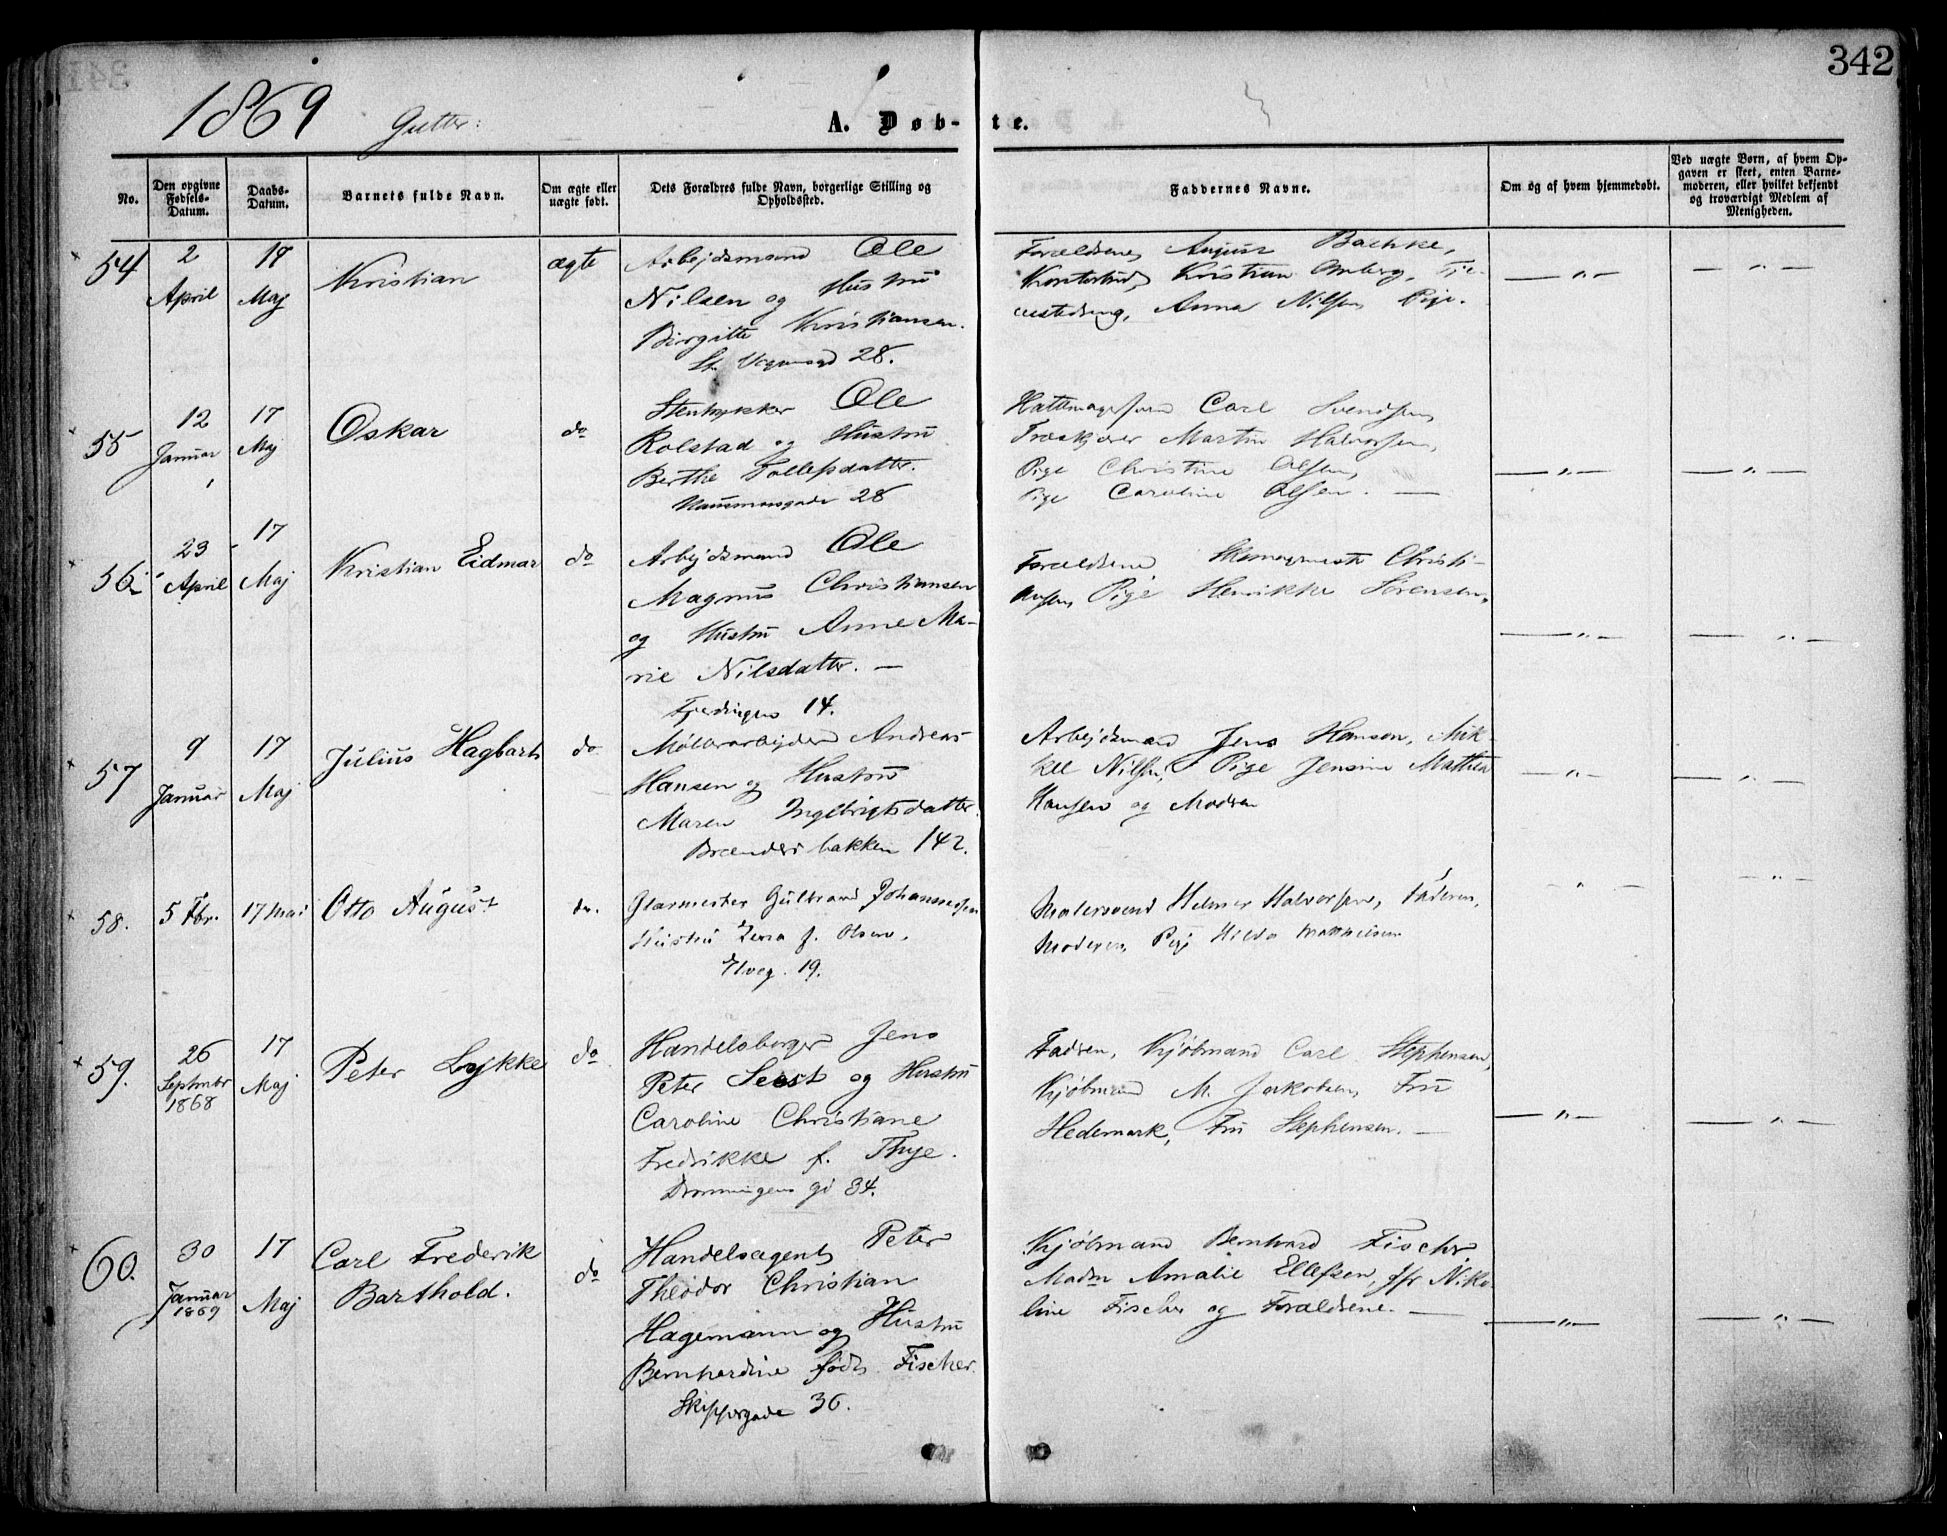 342
1869 Gutter:
A. Døb-te.
No.
Den opgivne Fødsels-Datum.
Daabs-Datum.
Barnets fulde Navn.
Om ægte eller uægte født.
Dets Forældres fulde Navn, borgerlige Stilling og Opholdssted.
Faddernes Navne.
Om og af hvem hjemmedøbt.
Ved uægte Børn, af hvem Opgaven er skeet, enten Barnemoderen, eller hvilket bekjendt og troværdigt Medlem af Menigheden.
54
2 April
17 Maj
Kristian
ægte
Arbejdsmand Ole
Nilsen og Hustru
Birgitte Kristiansen.
28.
Forældrene, August Bachke,
Kristian
Anna Nilsen, Pige.
— " —
— " —
55
12 Januar
17 Maj
Oskar
do
Stentrykker Ole
Rolstad og Hustru
Berthe Tollefsdatter.
Hausmansgade 28
Carl Svendsen,
Martin Halvorsen,
Pige Christine Olsen,
Pige Caroline Olsen. —
— " —
— " —
56
23 April
17 Maj
Kristian Eidmar
do
Arbejdsmand Ole
Magnus Christiansen
og Hustru Anne Ma-
rie Nilsdatter. —
Fjerdingen 14.
Forældrene Christi-
ansen, Pige Henrikke Sørensen.
— " —
— " —
57
9 Januar
17 Maj
Julius Hagbart
do
Møllerarbejder Andreas
Hansen og Hustru
Maren Ingebrigtsdatter.
Brænderibakken 142.
Arbejdsmand Jens Hansen, Mik-
kel Nilsen, Pige Jensine Mathea
Hansen og Modren
— " —
— " —
58.
5 Fbr.
17 Mai
Otto August
do.
Glasmester Gulbrand Johannessen
Hustru f. Olsen.
Elveg. 19.
Malersvend Helmer Halvorsen, Faderen,
Moderen, Pige Hilda Mathisen
"
— " —
59.
26 September 1868
17 Maj
Peter Lykke
do
Handelsborger Jens
Peter Seest og Hustru
Caroline Christiane
Fredrikke f. Thye.
Dronningens gd 34.
Fadren, Kjøbmand Carl Stephensen,
Kjøbmand M. Jakobsen, Fru
Hedemark, Fru Stephensen. —
— " —
— " —
60.
30 Januar 1869
17 Maj
Carl Frederik
Barthold.
do
Handelsagent Peter
Theodor Christian
Hagemann og Hustru
Bernhardine født Fischer
Skippergade 36.
Kjøbmand Bernhard Fischer,
Madm Amalie Ellefsen, Jfr Niko-
line Fischer og Forældrene. —
— " —
— " —